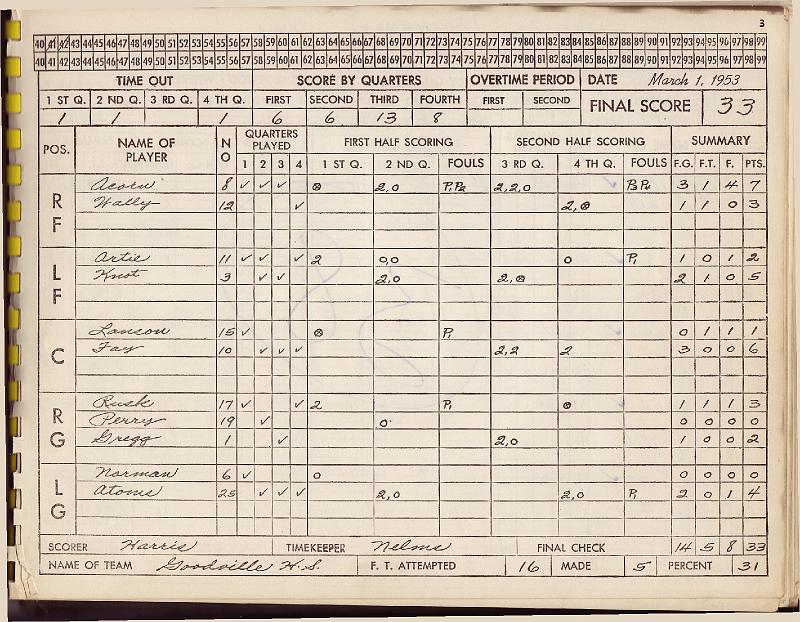 3
40 41 42 43 44 45 46 47 48 49 50 51 52 53 54 55 56 57 58 59 60 61 62 63 64 65 66 67 68 69 70 71 72 73 74 75 76 77 78 79 80 81 82 83 84 85 86 87 88 89 90 91 92 93 94 95 96 97 98 99
40 41 42 43 44 45 46 47 48 49 50 51 52 53 54 55 56 57 58 59 60 61 62 63 64 65 66 67 68 69 70 71 72 73 74 75 76 77 78 79 80 81 82 83 84 85 86 87 88 89 90 91 92 93 94 95 96 97 98 99
TIME OUT SCORE BY QUARTERS OVERTIME PERIOD DATE March 1, 1953
1 ST Q. 2 ND Q. 3 RD Q. 4 TH Q. FIRST SECOND THIRD FOURTH FIRST SECOND FINAL SCORE 33
1 1 1 6 6 13 8
POS. NAME OF PLAYER NO QUARTERS PLAYED FIRST HALF SCORING SECOND HALF SCORING SUMMARY
1 2 3 4 1 ST Q. 2 ND Q. FOULS 3 RD Q. 4 TH Q. FOULS F.G. F.T. F. PTS.
RF Acorn 8 ✓ ✓ ✓ ⊗ 2,0 P1P2 2,2,0 P3P4 3 1 4 7
Wally 12 ✓ 2,⊗ 1 1 0 3
LF Artie 11 ✓ ✓ ✓ 2 0,0 0 P1 1 0 1 2
Knot 3 ✓ ✓ 2,0 2,⊗ 2 1 0 5
C Lanson 15 ✓ ⊗ P1 0 1 1 1
Fay 10 ✓ ✓ ✓ 2,2 2 3 0 0 6
RG Rusk 17 ✓ ✓ 2 P1 ⊗ 1 1 1 3
Perry 19 ✓ 0 0 0 0 0
Gregg 1 ✓ 2,0 1 0 0 2
LG Norman 6 ✓ 0 0 0 0 0
Atoms 25 ✓ ✓ ✓ 2,0 2,0 P1 2 0 1 4
SCORER Harris TIMEKEEPER Nelms FINAL CHECK 14 5 8 33
NAME OF TEAM Goodville H.S. F. T. ATTEMPTED 16 MADE 5 PERCENT 31